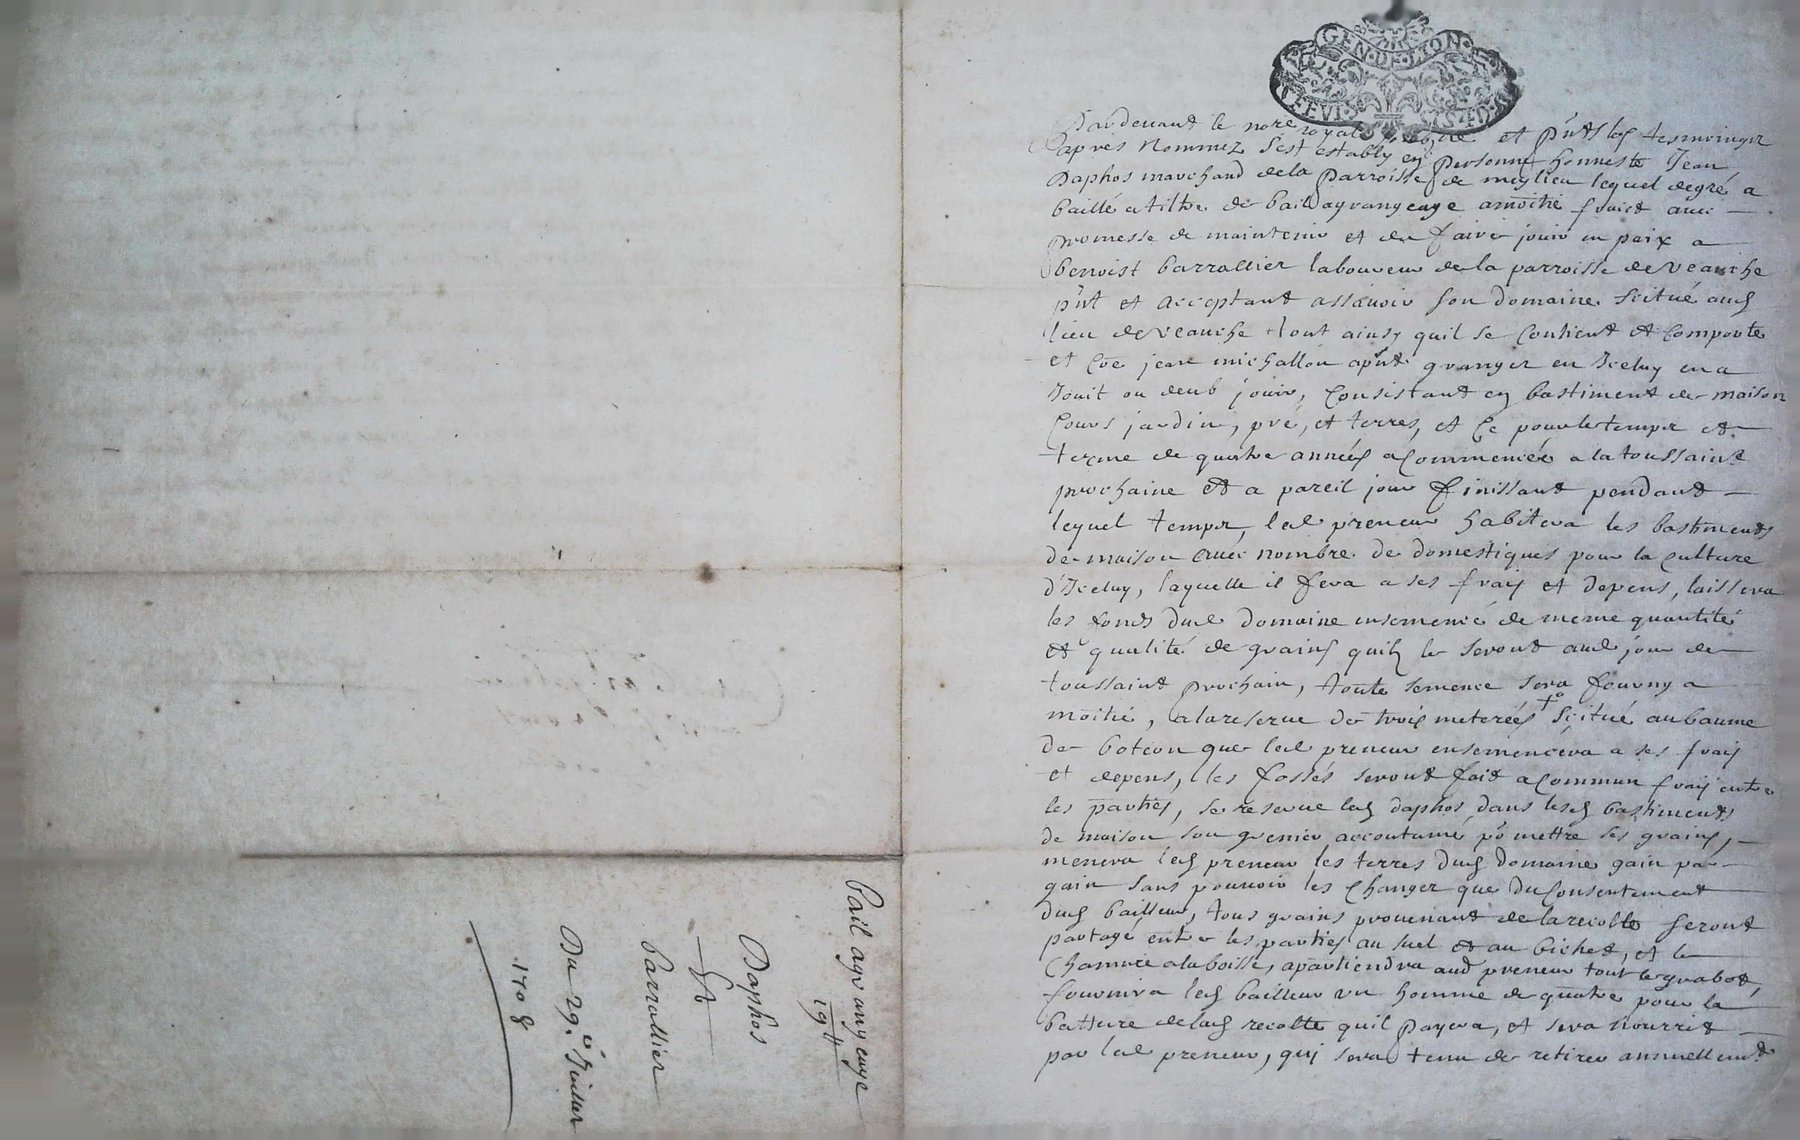 GEN·DE·LION
Pardevant le nore royal et pnts les tesmoings
apres nommez s'est estably en personne honneste Jean
Daphos marchand de la parroisse de meylieu lequel degré a
baillé a tiltre de bail a grangeage a moitié fruict avec
promesse de maintenir et de faire jouir en paix a
benoist barrallier laboureur de la parroisse de veauche
pnt et acceptant assavoir son domaine scitué aud
lieu de veauche tout ainsy quil se contient et comporte
et coe jean michallon apnt granger en Iceluy en a
Jouit ou deub jouir, Consistant en bastiment de maison
Cours jardin, pré, et terres, et Ce pour le temps et
terme de quatre années a Commencée a la toussaint
prochaine et a pareil jour finissant pendant
lequel temps, led preneur habitera les bastiments
de maison avec nombre de domestiques pour la Culture
d'Iceluy, laquelle il fera a ses frais et depens, laissera
les fonds dud domaine ensemencé de meme quantité
et qualité de grains quils le seront aud jour de
toussaint prochain, toute semence sera fourny a
moitié, a la reserve de trois meterées + scitué au baume
de boteon que led preneur ensemencera a ses frais
et depens, les fossés seront fait a Commun frais entre
les parties, se reserve led daphos dans lesd bastiments
de maison son grenier accoutumé po mettre ses grains,
menera led preneur les terres dud domaine gain par
gain sans pouvoir les Changer que du Consentement
dud bailleur, tous grains provenant de la recolte seront
partagé entre les parties au suel et au bichet, et le
Chanvre a la boisse, apartiendra aud preneur tout le grabot,
fournira led bailleur un homme de quatre pour la
batture de lad recolte quil payera, et sera nourrit
par led preneur, qui sera tenu de retirer annuellemt
bail a grangeage
194
Daphos
Et
barrallier
Du 29.e Juillet
1708